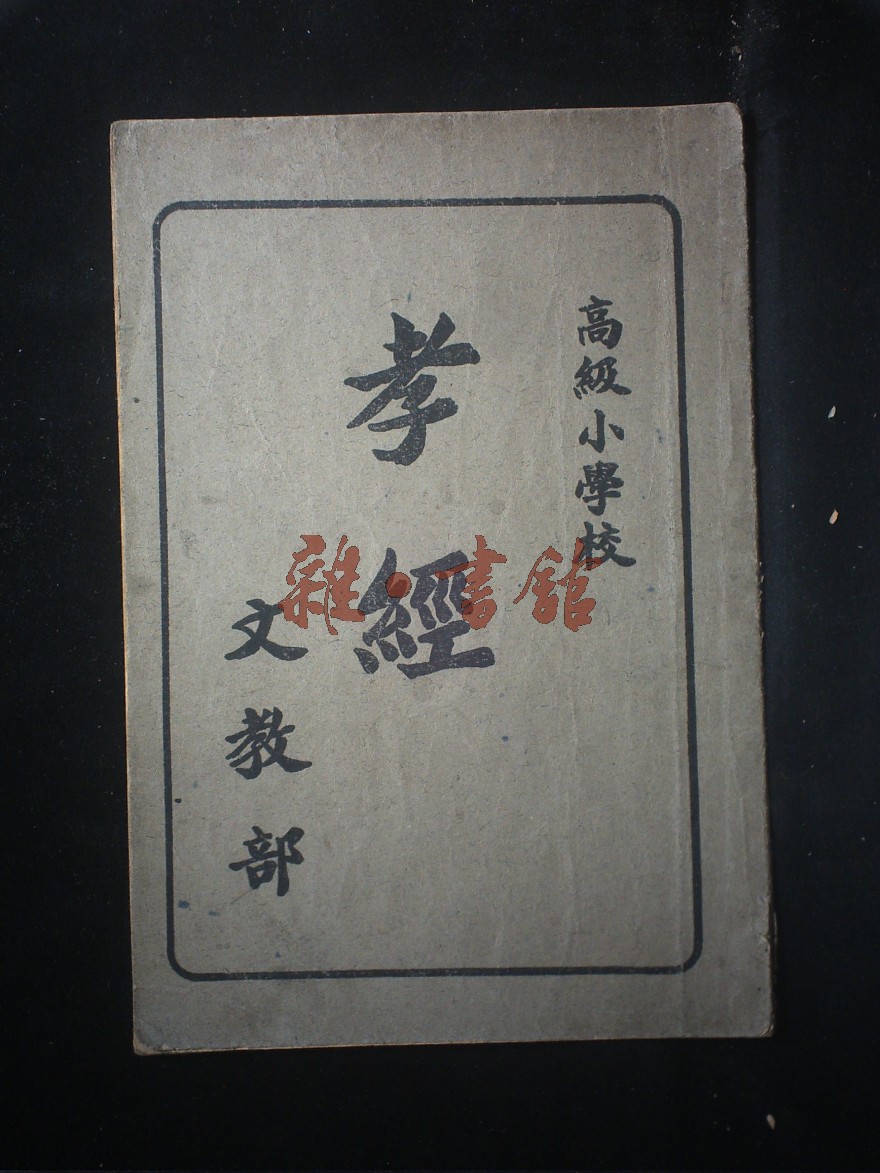 高級小學校
孝經
文教部
雜·書館